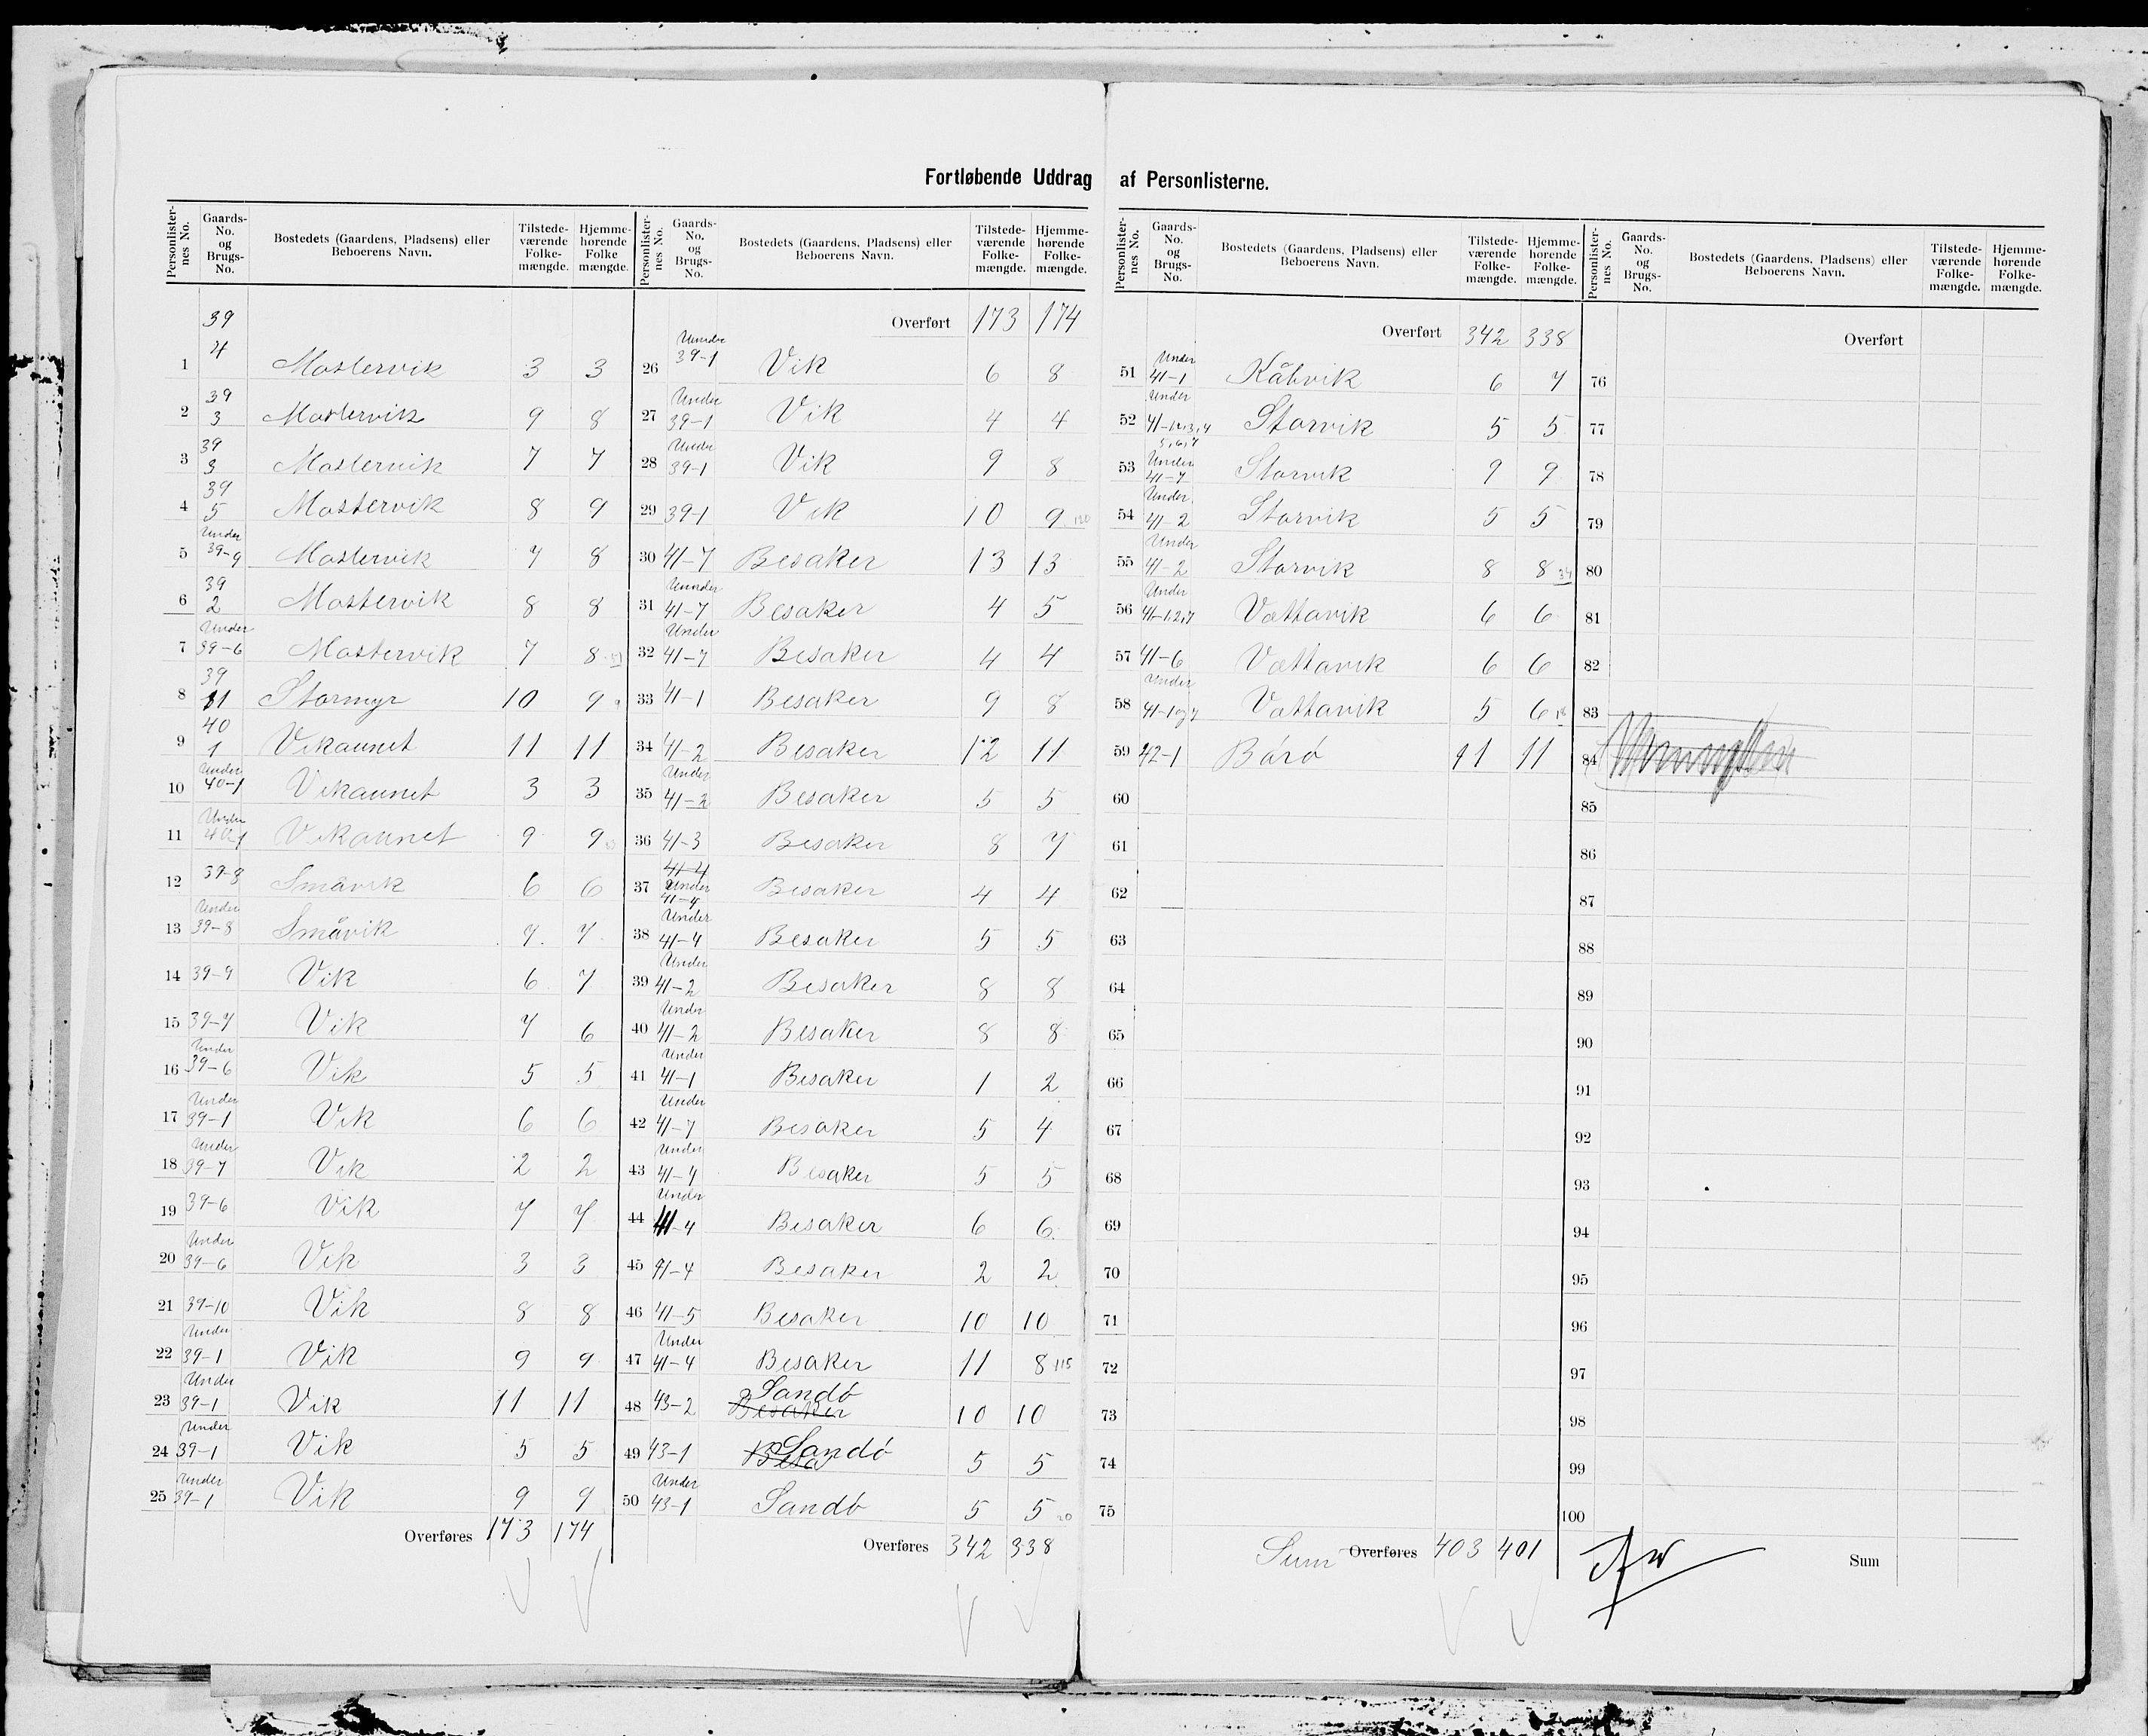 Fortløbende Uddrag af Personlisterne.
Personlister-nes No. Gaards-No. og Brugs-No. Bostedets (Gaardens, Pladsens) eller Beboerens Navn. Tilstede-værende Folke-mængde. Hjemme-hørende Folke mængde.
39
1 4 Mastervik 3 3
2 39 3 Mastervik 9 8
3 39 3 Mastervik 7 7
4 39 5 Mastervik 8 9
5 Under 39-9 Mastervik 7 8
6 39 2 Mastervik 8 8
7 Under 39-6 Mastervik 7 8
8 39 11 Stormyr 10 9 9
9 40 1 Vikaunet 11 11
10 Under 40-1 Vikaunet 3 3
11 Under 40-1 Vikaunet 9 9
12 39-8 Småvik 6 6
13 Under 39-8 Småvik 7 7
14 39-9 Vik 6 7
15 39-7 Vik 7 6
16 Under 39-6 Vik 5 5
17 Under 39-1 Vik 6 6
18 Under 39-7 Vik 2 2
19 39-6 Vik 7 7
20 Under 39-6 Vik 3 3
21 39-10 Vik 8 8
22 Under 39-1 Vik 9 9
23 Under 39-1 Vik 11 11
24 Under 39-1 Vik 5 5
25 Under 39-1 Vik 9 9
Overføres 173 174
Personlister-nes No. Gaards-No. og Brugs-No. Bostedets (Gaardens, Pladsens) eller Beboerens Navn. Tilstede-værende Folke-mængde. Hjemme-hørende Folke-mængde.
Overført 173 174
26 Under 39-1 Vik 6 8
27 Under 39-1 Vik 4 4
28 Under 39-1 Vik 9 8
29 39-1 Vik 10 9 120
30 41-7 Besaker 13 13
31 Under 41-7 Besaker 4 5
32 Under 41-7 Besaker 4 4
33 41-1 Besaker 9 8
34 41-2 Besaker 12 11
35 Under 41-2 Besaker 5 5
36 41-3 Besaker 8 7
37 41-4 Under 41-4 Besaker 4 4
38 Under 41-4 Besaker 5 5
39 Under 41-2 Besaker 8 8
40 Under 41-2 Besaker 8 8
41 Under 41-1 Besaker 1 2
42 Under 41-7 Besaker 5 4
43 Under 41-4 Besaker 5 5
44 Under 41-4 Besaker 6 6
45 41-4 Besaker 2 2
46 41-5 Besaker 10 10
47 Under 41-4 Besaker 11 8 115
48 43-2 Besaker Sandö 10 10
49 43-1 Besa Sandö 5 5
50 Under 43-1 Sandö 5 5 20
Overføres 342 338
Personlister-nes No. Gaards-No. og Brugs-No. Bostedets (Gaardens, Pladsens) eller Beboerens Navn. Tilstede-værende Folke-mængde. Hjemme-hørende Folke-mængde.
Overført 342 338
51 Under 41-1 Råhvik 6 7
52 Under 41-1,2,3,4 5,6,7 Storvik 5 5
53 Under 41-7 Storvik 9 9
54 Under 41-2 Storvik 5 5
55 Under 41-2 Storvik 8 8 34
56 Under 41-1,2,7 Vættavik 6 6
57 41-6 Vættavik 6 6
58 Under 41-1 og 7 Vættavik 5 6 18
59 42-1 Börö 11 11
60
61
62
63
64
65
66
67
68
69
70
71
72
73
74
75
Sum Overføres 403 401
Personlister-nes No. Gaards-No. og Brugs-No. Bostedets (Gaardens, Pladsens) eller Beboerens Navn. Tilstede-værende Folke-mængde. Hjemme-hørende Folke-mængde.
Overført
76
77
78
79
80
81
82
83
84
85
86
87
88
89
90
91
92
93
94
95
96
97
98
99
100
Sum